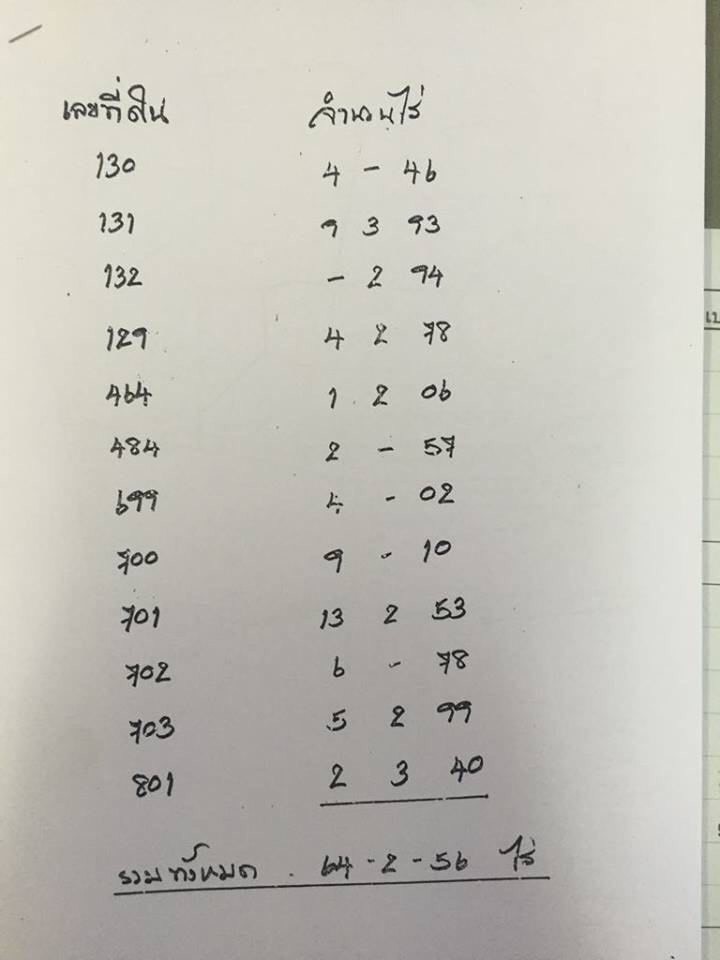 เลขที่ดิน จำนวนไร่
130 4 - 46
131 9 3 93
132 - 2 94
129 4 2 78
464 1 2 06
484 2 - 57
699 4 - 02
700 9 - 10
701 13 2 53
702 6 - 78
703 5 2 99
801 2 3 40
รวมทั้งหมด . 64 - 2 - 56 ไร่